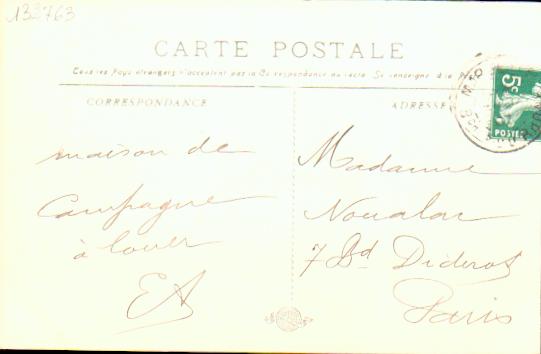 133763
CARTE POSTALE
Tous les Pays étrangers n'acceptent pas la Correspondance au recto. Se renseigner à la
CORRESPONDANCE
ADRESSE
5c
POSTES
maison de
Campagne
à louer
EA
Madame
Noualon
7 Bd Diderot
Paris